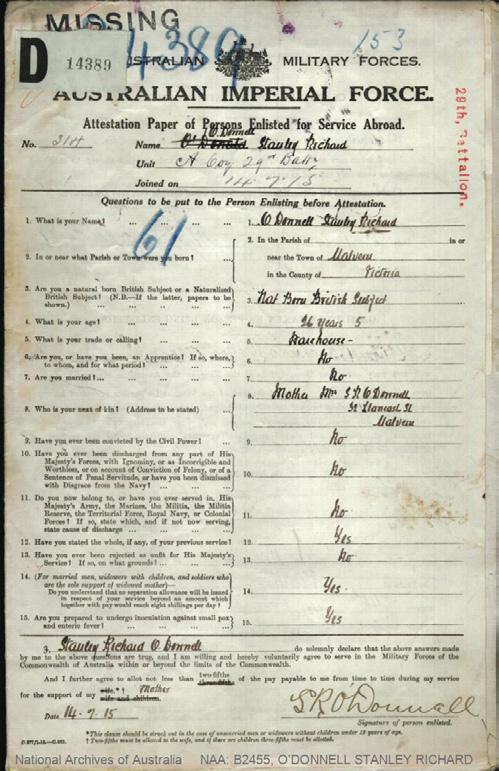 MISSING
D 14389
4389
153
AUSTRALIAN MILITARY FORCES.
AUSTRALIAN IMPERIAL FORCE.
29th, Battalion.
Attestation Paper of Persons Enlisted for Service Abroad.
O'Donnell
No. 314 Name O'Donald Stanley Richard
Unit A Coy 29th Battn
Joined on 14.7.15
Questions to be put to the Person Enlisting before Attestation.
61
1. What is your Name? ... ... ... 1. O'Donnell Stanley Richard
2. In or near what Parish or Town were you born? 2. In the Parish of in or
near the Town of Malvern
in the County of Victoria
3. Are you a natural born British Subject or a Naturalized
British Subject? (N.B.—If the latter, papers to be
shown.) 3. Nat Born British Subject
4. What is your age? 4. 26 years 5
5. What is your trade or calling? 5. Warehouse-
6. Are you, or have you been, an Apprentice? If so, where,
to whom, and for what period? 6. No
7. Are you married? 7. No.
8. Who is your next of kin? (Address to be stated) 8. Mother Mrs S. R. O'Donnell
St
Malvern
9. Have you ever been convicted by the Civil Power? 9. No
10. Have you ever been discharged from any part of His
Majesty's Forces, with Ignominy, or as Incorrigible and
Worthless, or on account of Conviction of Felony, or of a
Sentence of Penal Servitude, or have you been dismissed
with Disgrace from the Navy? 10. No
11. Do you now belong to, or have you ever served in, His
Majesty's Army, the Marines, the Militia, the Militia
Reserve, the Territorial Force, Royal Navy, or Colonial
Forces? If so, state which, and if not now serving,
state cause of discharge 11. No
12. Have you stated the whole, if any, of your previous service? 12. Yes
13. Have you ever been rejected as unfit for His Majesty's
Service? If so, on what grounds? 13. No
14. (For married men, widowers with children, and soldiers who
are the sole support of widowed mother)—
Do you understand that no separation allowance will be issued
in respect of your service beyond an amount which
together with pay would reach eight shillings per day? 14. Yes.
15. Are you prepared to undergo inoculation against small pox
and enteric fever? 15. Yes
I, Stanley Richard O'Donnell do solemnly declare that the above answers made
by me to the above questions are true, and I am willing and hereby voluntarily agree to serve in the Military Forces of the
Commonwealth of Australia within or beyond the limits of the Commonwealth.
And I further agree to allot not less than two-fifths three-fifths of the pay payable to me from time to time during my service
for the support of my wife.*† Mother
wife and children.
Date 14.7.15 S R O'Donnell
Signature of person enlisted.
*This clause should be struck out in the case of unmarried men or widowers without children under 18 years of age.
†Two-fifths must be allotted to the wife, and if there are children three-fifths must be allotted.
National Archives of Australia NAA: B2455, O'DONNELL STANLEY RICHARD